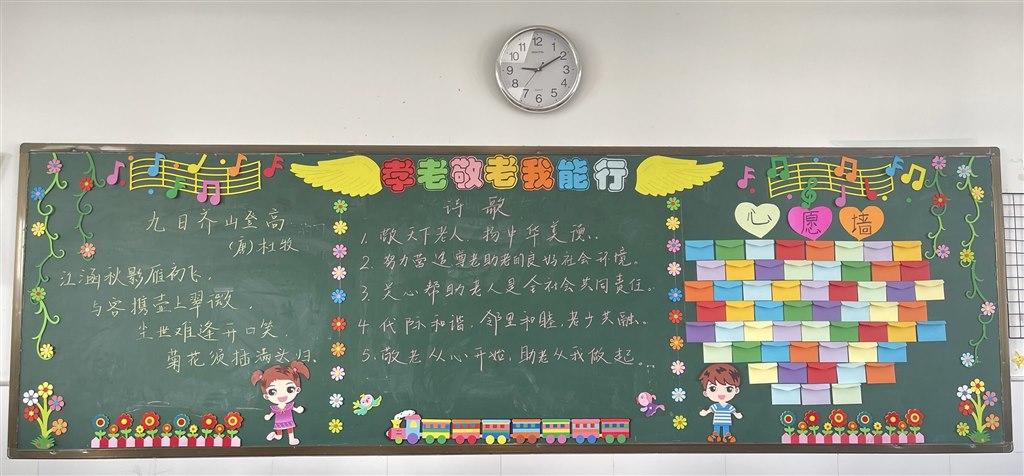 孝老敬老我能行
九日齐山登高
(唐)杜牧
江涵秋影雁初飞.
与客携壶上翠微.
尘世难逢开口笑.
菊花须插满头归.
诗歌
1. 敬天下老人 扬中华美德.
2. 努力营造尊老助老的良好社会环境。
3. 关心帮助老人是全社会共同责任。
4. 代际和谐, 邻里和睦, 老少共融。
5. 敬老从心开始, 助老从我做起。...
心愿墙
12
1
2
3
4
5
6
7
8
9
10
11